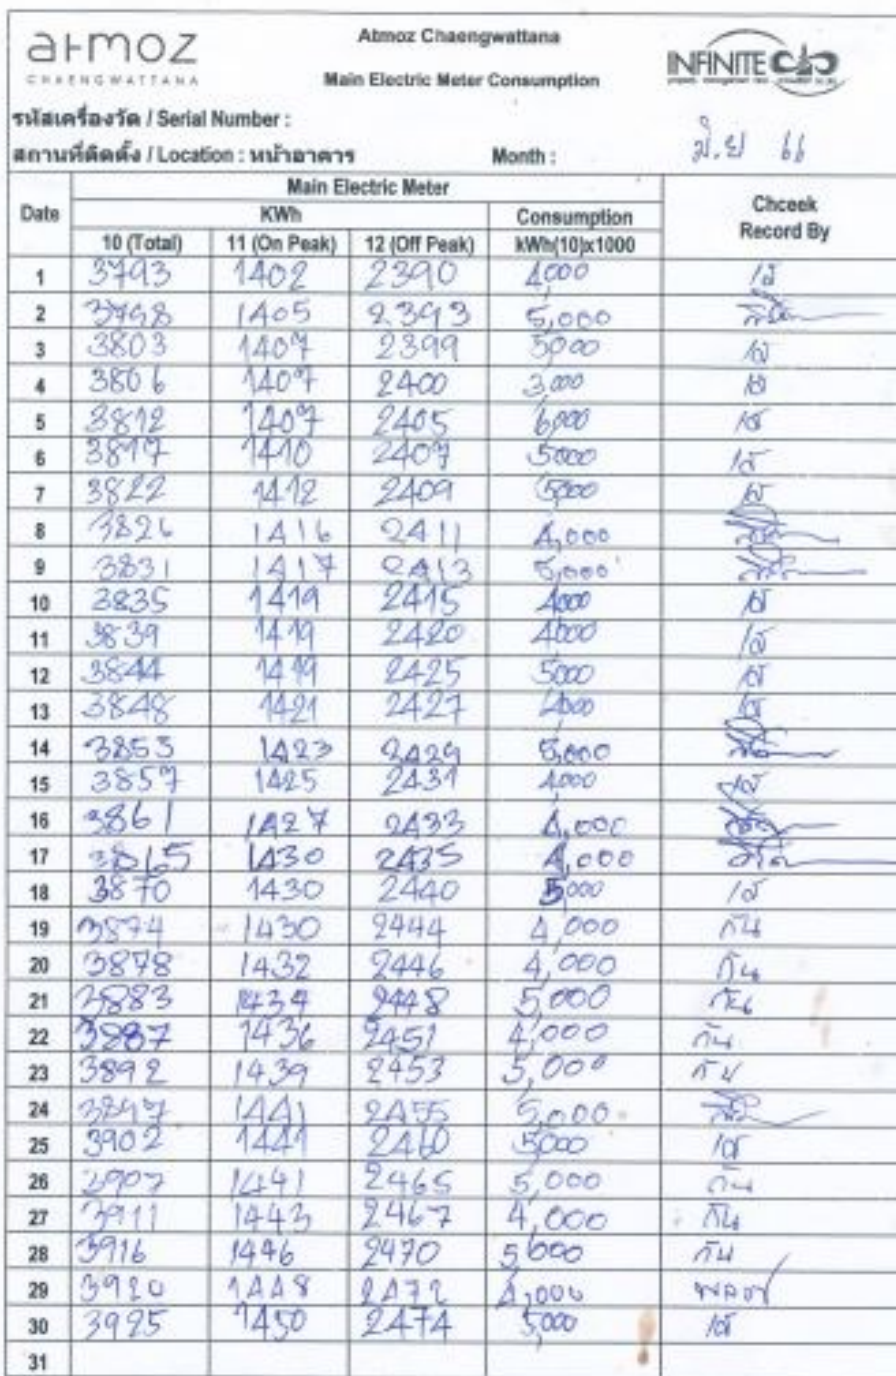 atmoz
CHAENGWATTANA
Atmoz Chaengwattana
Main Electric Meter Consumption
INFINITE
รหัสเครื่องวัด / Serial Number :
สถานที่ติดตั้ง / Location : หน้าอาคาร Month : มิ.ย 66
Date Main Electric Meter Chceek Record By
KWh Consumption
10 (Total) 11 (On Peak) 12 (Off Peak) kWh(10)x1000
1 3793 1402 2390 4,000
2 3798 1405 2393 5,000
3 3803 1407 2399 5000
4 3806 1407 2400 3,000
5 3812 1407 2405 6,000
6 3817 1410 2407 5000
7 3822 1412 2409 5000
8 3826 1416 2411 4,000
9 3831 1417 2413 5,000
10 3835 1419 2415 4000
11 3839 1419 2420 4000
12 3844 1419 2425 5000
13 3848 1421 2427 4000
14 3853 1423 2429 5,000
15 3857 1425 2431 4,000
16 3861 1427 2433 4,000
17 3865 1430 2435 4,000
18 3870 1430 2440 5,000
19 3874 1430 2444 4,000 กัน
20 3878 1432 2446 4,000 กัน
21 3883 1434 2448 5,000 กัน
22 3887 1436 2451 4,000 กัน
23 3892 1439 2453 5,000 กัน
24 3897 1441 2455 5,000
25 3902 1441 2460 5,000
26 3907 1441 2465 5,000 กัน
27 3911 1443 2467 4,000 กัน
28 3916 1446 2470 5,000 กัน
29 3920 1448 2472 4,000
30 3925 1450 2474 5,000
31